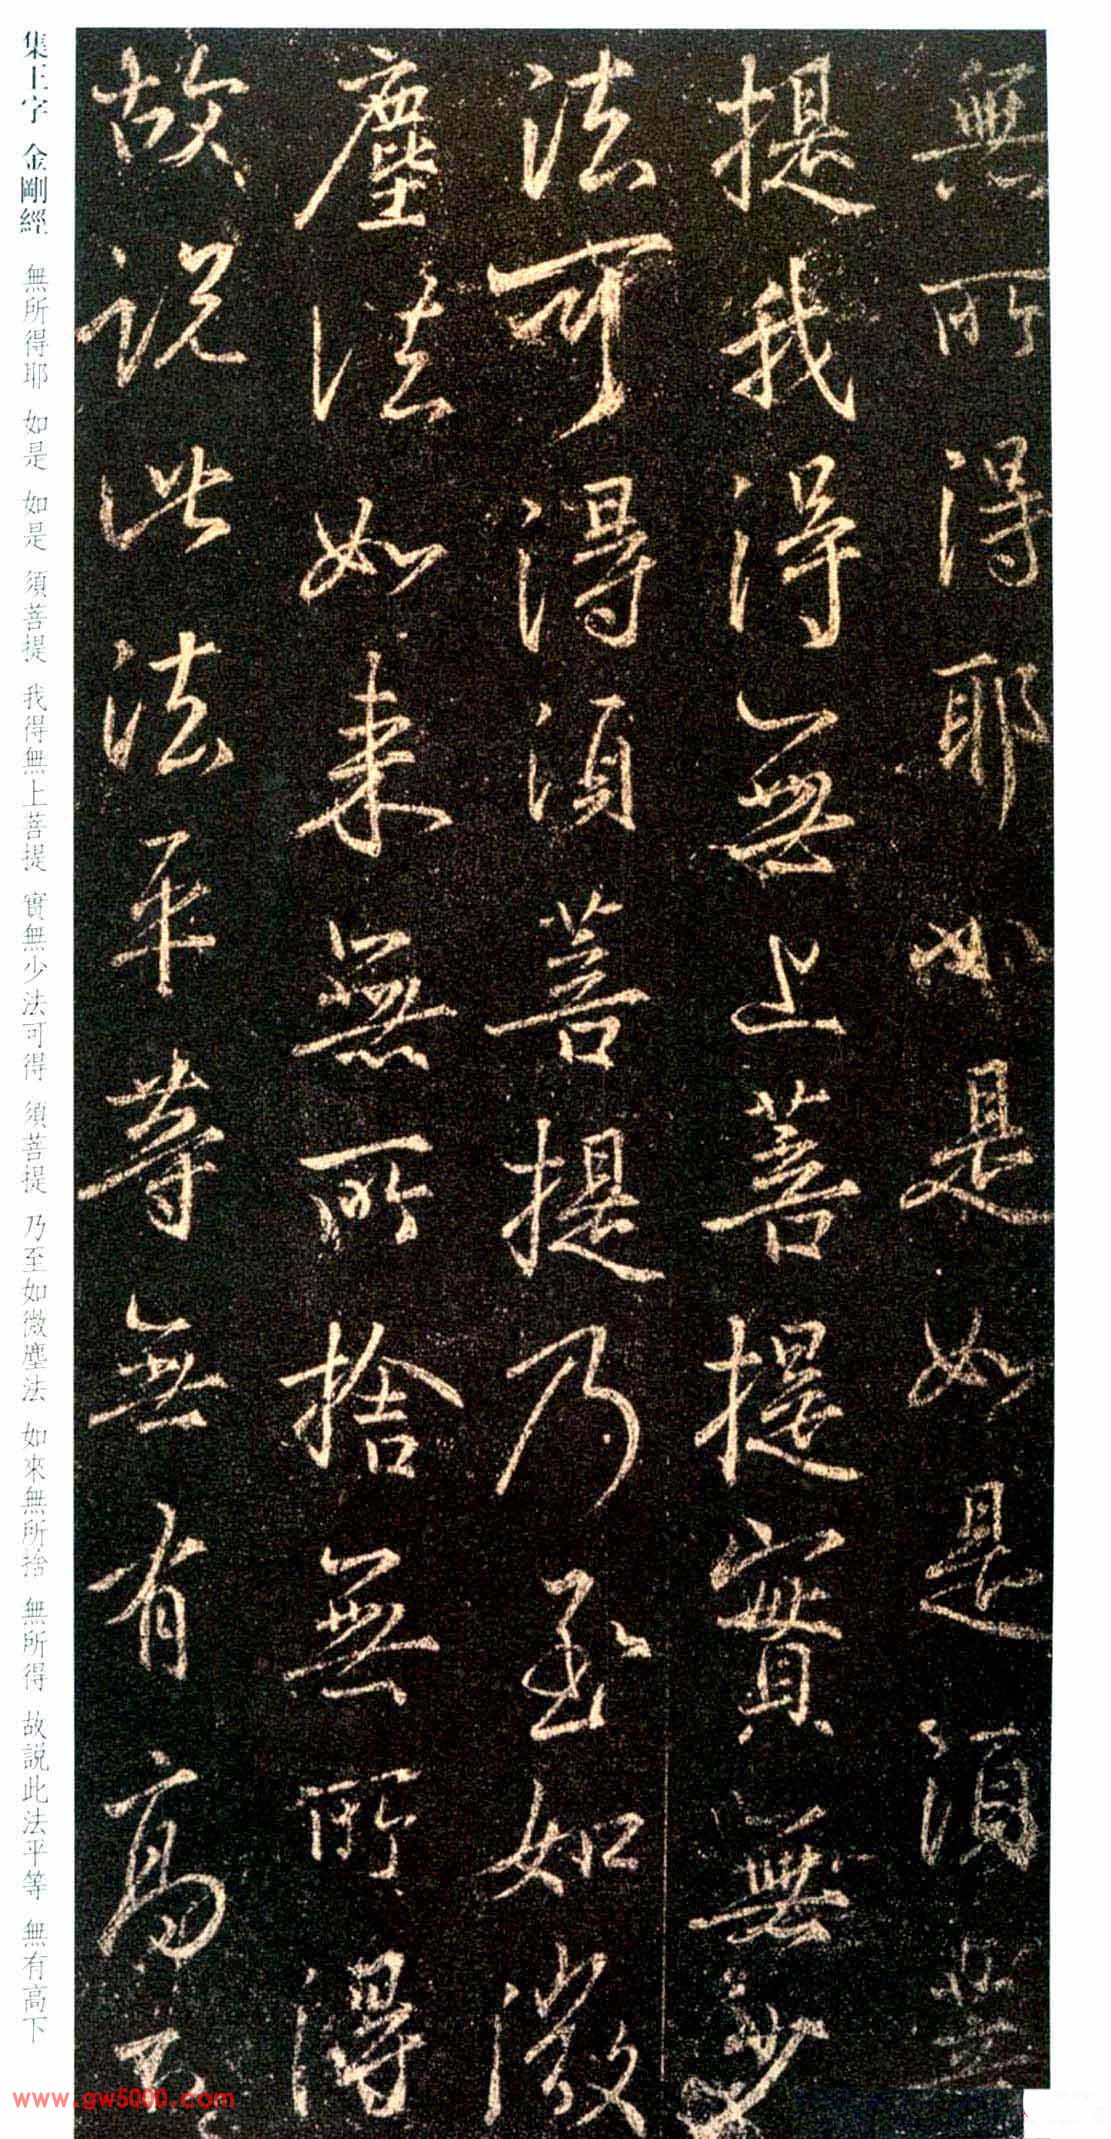 無所得耶如是如是須菩
提我得無上菩提實無少
法可得須菩提乃至如微
塵法如来無所捨無所得
故說此法平等無有高下
集王字 金剛經 無所得耶 如是 如是 須菩提 我得無上菩提 實無少法可得 須菩提 乃至如微塵法 如來無所捨 無所得 故説此法平等 無有高下
www.gw5000.com